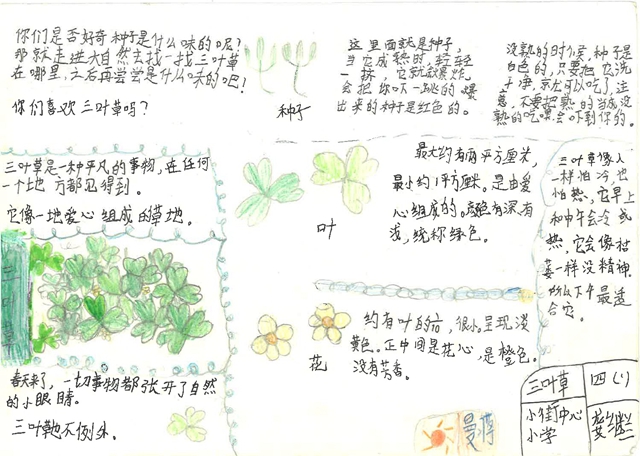 你们是否好奇种子是什么味的呢?
那就走进大自然去找一找三叶草
在哪里,之后再尝尝是什么味的吧!
你们喜欢三叶草吗?
种子
这里面就是种子,
当它成熟时,轻轻
一挤,它就爆炸,
会把你吓一跳的爆
出来的种子是红色的。
没熟的时候,种子是
白色的,只要把它洗
干净,就能可以吃了,注
意,不要把熟的当成没
熟的吃噢,会吓到你的。
三叶草是一种平凡的事物,在任何
一个地方都见得到。
它像一地爱心组成的草地。
三叶草
叶
最大约有两平方厘米,
最小约1平方厘米。是由爱
心组成的。颜色有深有
浅,统称绿色。
三叶草像人
一样怕冷,也
怕热,它早上
和中午会冷或
热,它会像枯
萎一样没精神
所以下午最适
合它。
花
约有叶的,很小。呈现淡
黄色。正中间是花心,是橙色。
没有芳香。
春天来了,一切事物都张开了自然
的小眼睛。
三叶草也不例外。
三叶草
四(1)
小街中心
小学